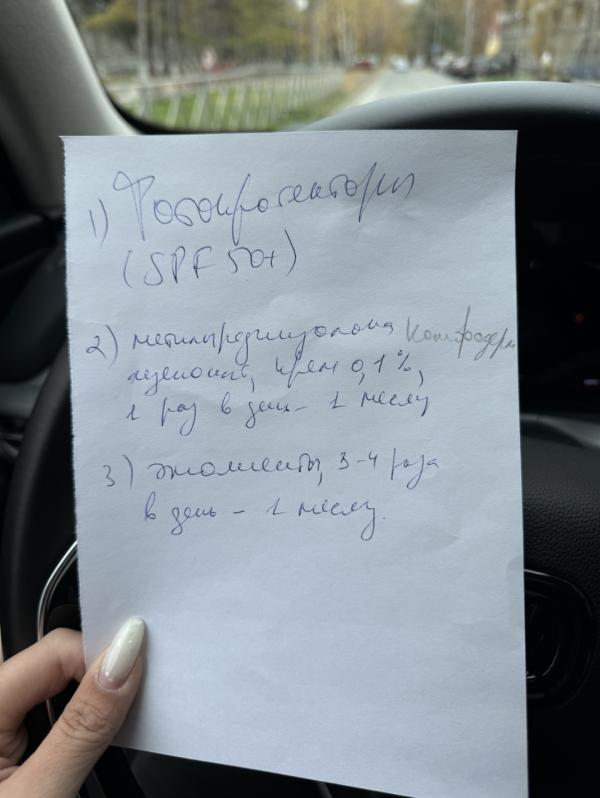 1) Фотопротекторы
(SPF 50+)
2) метилпреднизолона Комфодерм
ацепонат, крем 0,1%,
1 раз в день – 1 месяц
3) эмоленты, 3-4 раза
в день – 1 месяц.